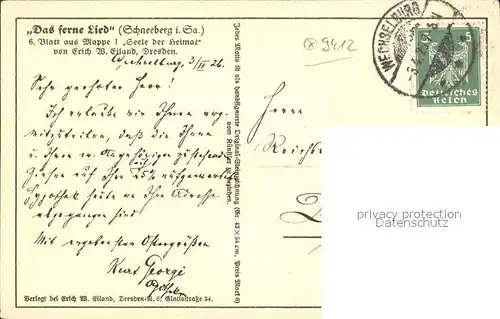 "Das ferne Lied" (Schneeberg i. Sa.)
6. Blatt aus Mappe I „Seele der Heimat"
von Erich W. Eiland, Dresden.
Wechselburg, 3/IV 26.
Sehr geehrter Herr!
Ich erlaube mir Ihnen
mitzuteilen, daß die Ihnen
u. Ihren w. Angehörigen zustehenden
auf Ihre 25%
Hypothek heute an Ihre Adresse
abgegangen sind.
Mit ergebensten Ostergrüßen
Kurt Georgi
Verlegt bei Erich W. Eiland, Dresden-N. 6, Glacisstraße 34.
Jedes Motiv ist als handsignierte Original-Steinzeichnung (Gr. 42×54 cm, Preis Mark 6)
vom Künstler zu beziehen.
9412
WECHSELBURG
Deutsches
Reich
5
Herrn
privacy protection
Datenschutz